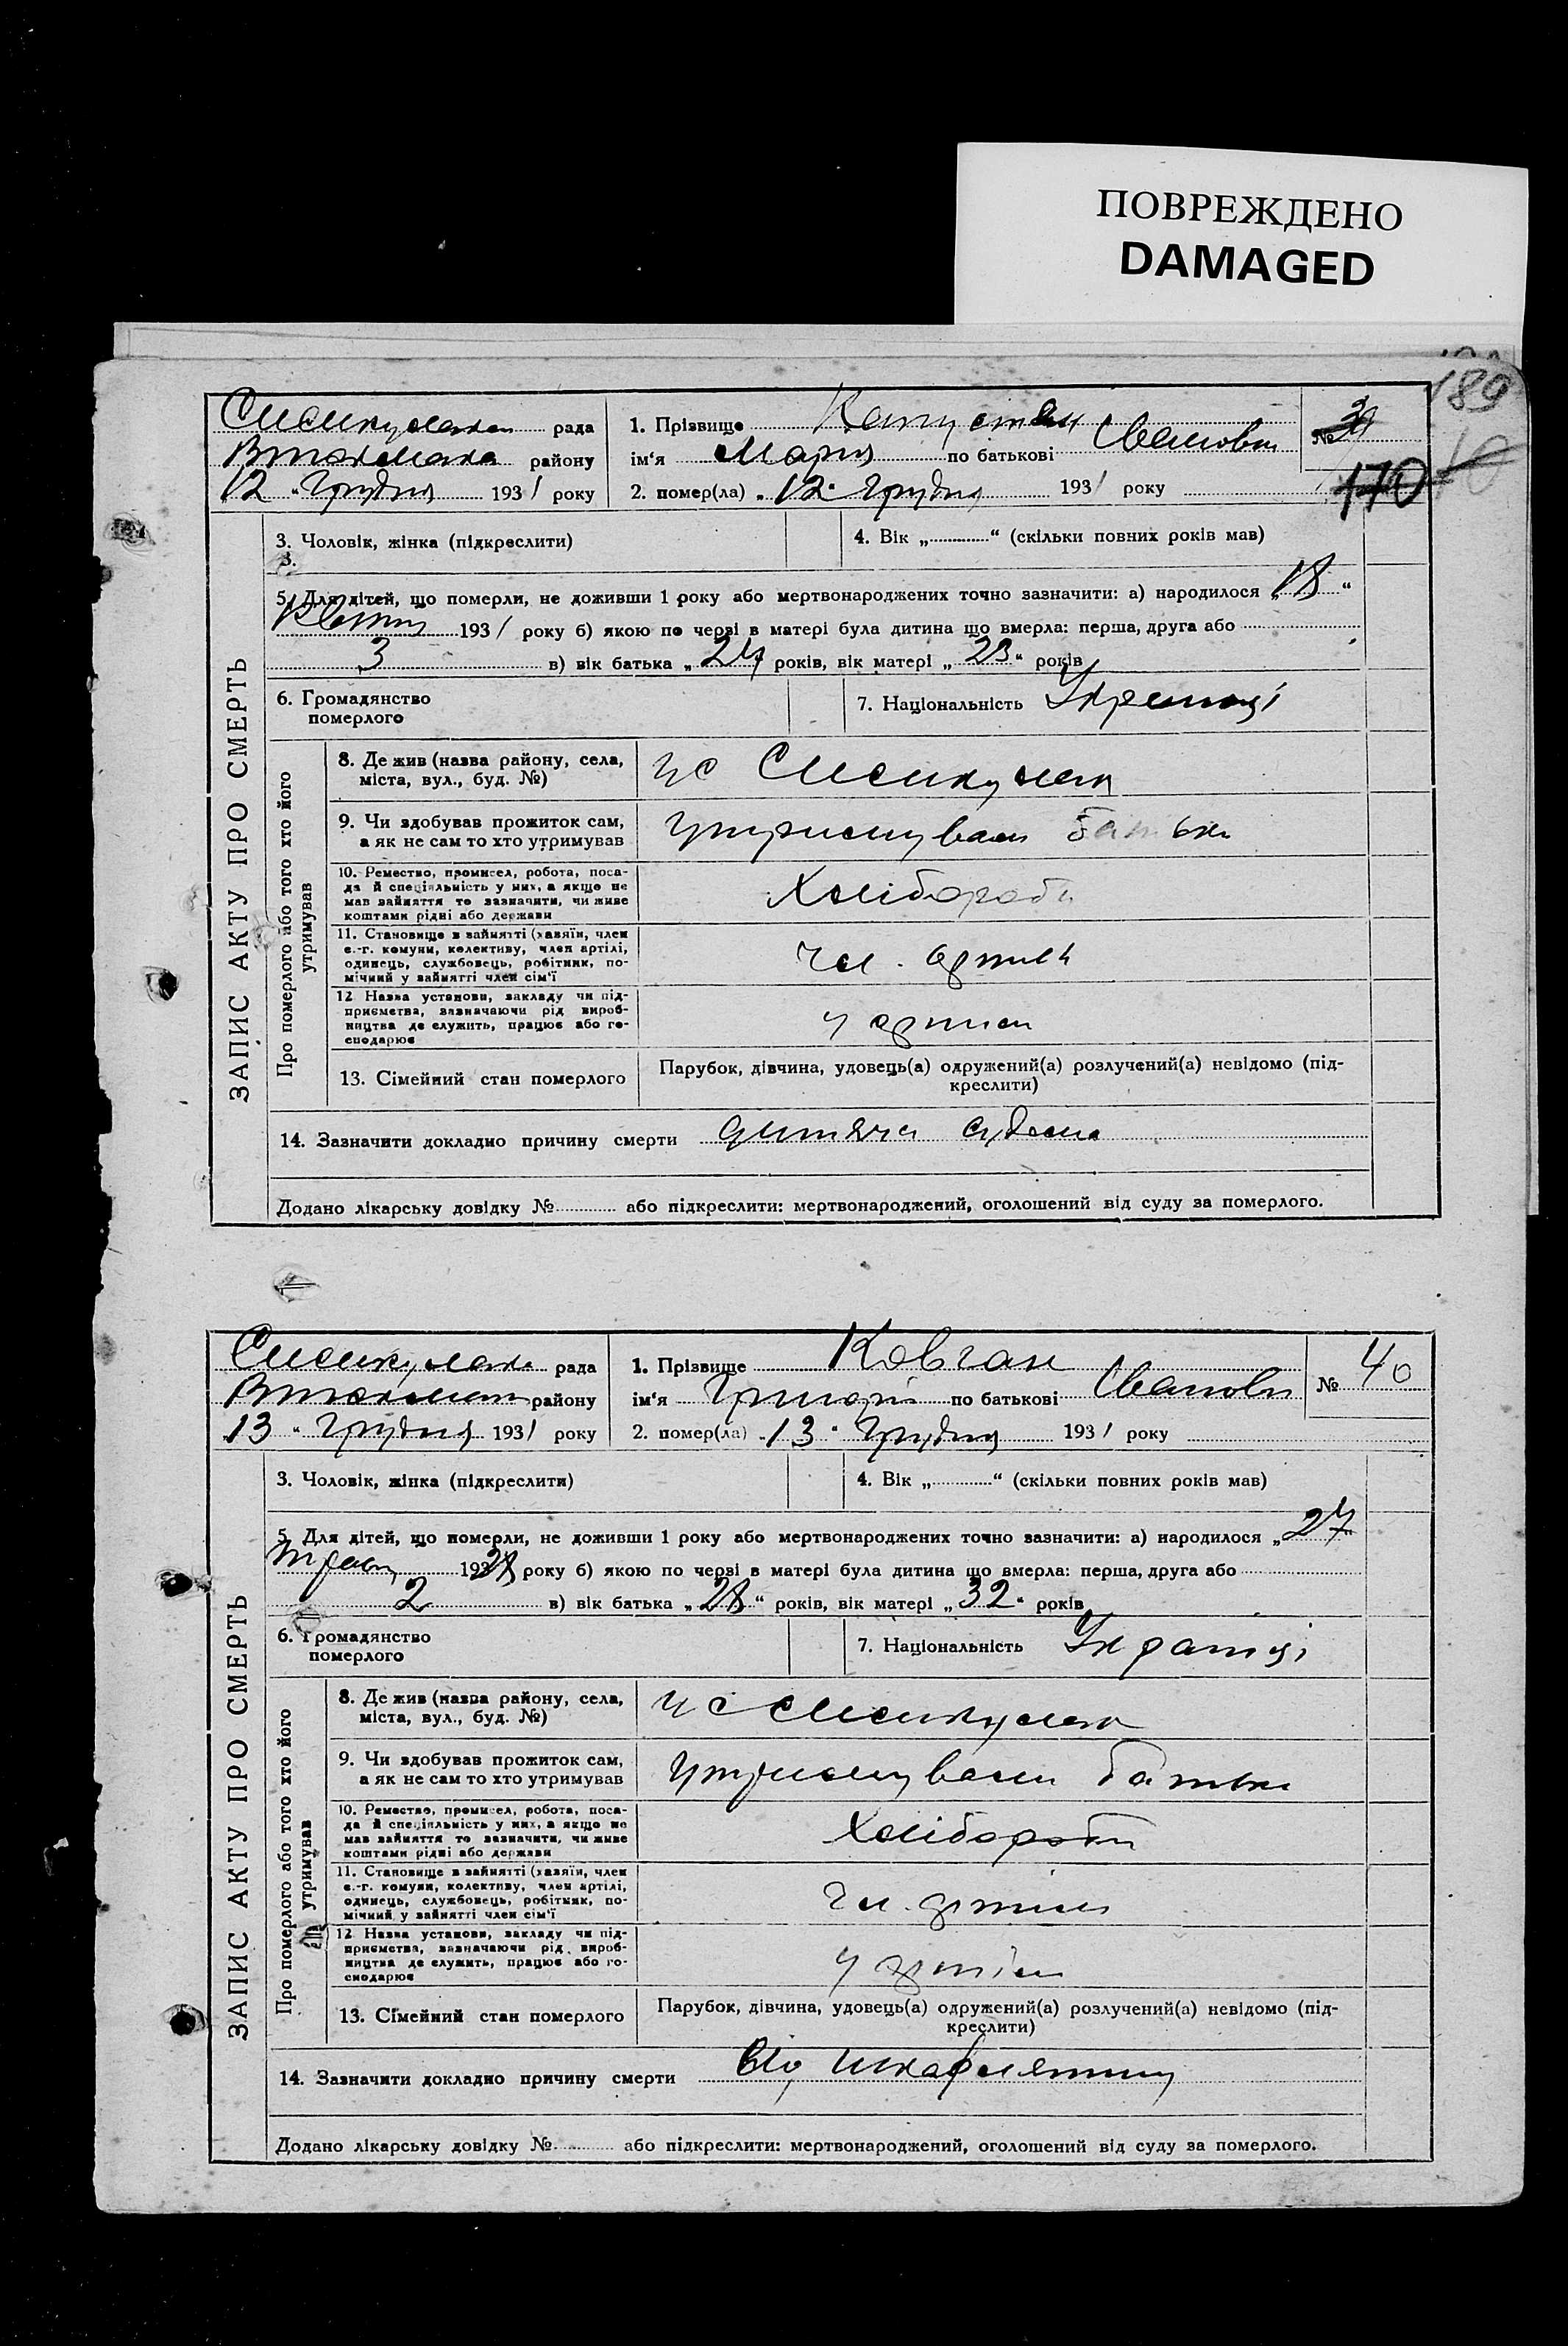 ПОВРЕЖДЕНО
DAMAGED
189
рада 1. Прізвище Капустян № 39
району ім'я Мария по батькові Івановн
12 " Грудня 1931 року 2. помер(ла) " 12 " Грудня 1931 року 170
ЗАПИС АКТУ ПРО СМЕРТЬ
3. Чоловік, жінка (підкреслити) 4. Вік „ “ (скільки повних років мав)
3.
5. Для дітей, що померли, не доживши 1 року або мертвонароджених точно зазначити: а) народилося „ 18 “
193 / року б) якою по черві в матері була дитина що вмерла: перша, друга або
3 в) вік батька „ 24 років, вік матері „ 23 “ років
6. Громадянство 7. Національність
померлого
Про померлого або того хто його
утримував
8. Де жив (назва району, села,
міста, вул., буд. №)
9. Чи здобував прожиток сам, батьки
а як не сам то хто утримував
10. Ремество, промисел, робота, поса- Хлібороби
да й спеціяльність у них, а якщо не
мав зайняття то зазначити, чи живе
коштами рідні або держави
11. Становище в зайнятті (хазяїн, член чл. артілі
с.-г. комуни, колективу, член артілі,
одинець, службовець, робітник, по-
мічний у зайнятті член сім'ї
12 Назва установи, закладу чи під- у артілі
приємства, зазначаючи рід вироб-
ництва де служить, працює або го-
сподарює
13. Сімейний стан померлого Парубок, дівчина, удовець(а) одружений(а) розлучений(а) невідомо (під-
креслити)
14. Зазначити докладно причину смерти дитяча
Додано лікарську довідку № або підкреслити: мертвонароджений, оголошений від суду за померлого.
рада 1. Прізвище Ковган № 40
району ім'я Григорій по батькові Іванови
„ 13 " Грудня 1931 року 2. помер(ла) „ 13 " Грудня 1931 року
ЗАПИС АКТУ ПРО СМЕРТЬ
3. Чоловік, жінка (підкреслити) 4. Вік „ “ (скільки повних років мав)
5. Для дітей, що померли, не доживши 1 року або мертвонароджених точно зазначити: а) народилося „ 27 “
193 року б) якою по черві в матері була дитина що вмерла: перша, друга або
2 в) вік батька „ 28 “ років, вік матері „ 32 “ років
6. Громадянство 7. Національність
померлого
Про померлого або того хто його
утримував
8. Де жив (назва району, села,
міста, вул., буд. №)
9. Чи здобував прожиток сам, батьки
а як не сам то хто утримував
10. Ремество, промисел, робота, поса- Хлібороби
да й спеціяльність у них, а якщо не
мав зайняття то зазначити, чи живе
коштами рідні або держави
11. Становище в зайнятті (хазяїн, член чл. артілі
с.-г. комуни, колективу, член артілі,
одинець, службовець, робітник, по-
мічний у зайнятті член сім'ї
12 Назва установи, закладу чи під- у артілі
приємства, зазначаючи рід вироб-
ництва де служить, працює або го-
сподарює
13. Сімейний стан померлого Парубок, дівчина, удовець(а) одружений(а) розлучений(а) невідомо (під-
креслити)
14. Зазначити докладно причину смерти Від шкарлятини
Додано лікарську довідку № або підкреслити: мертвонароджений, оголошений від суду за померлого.